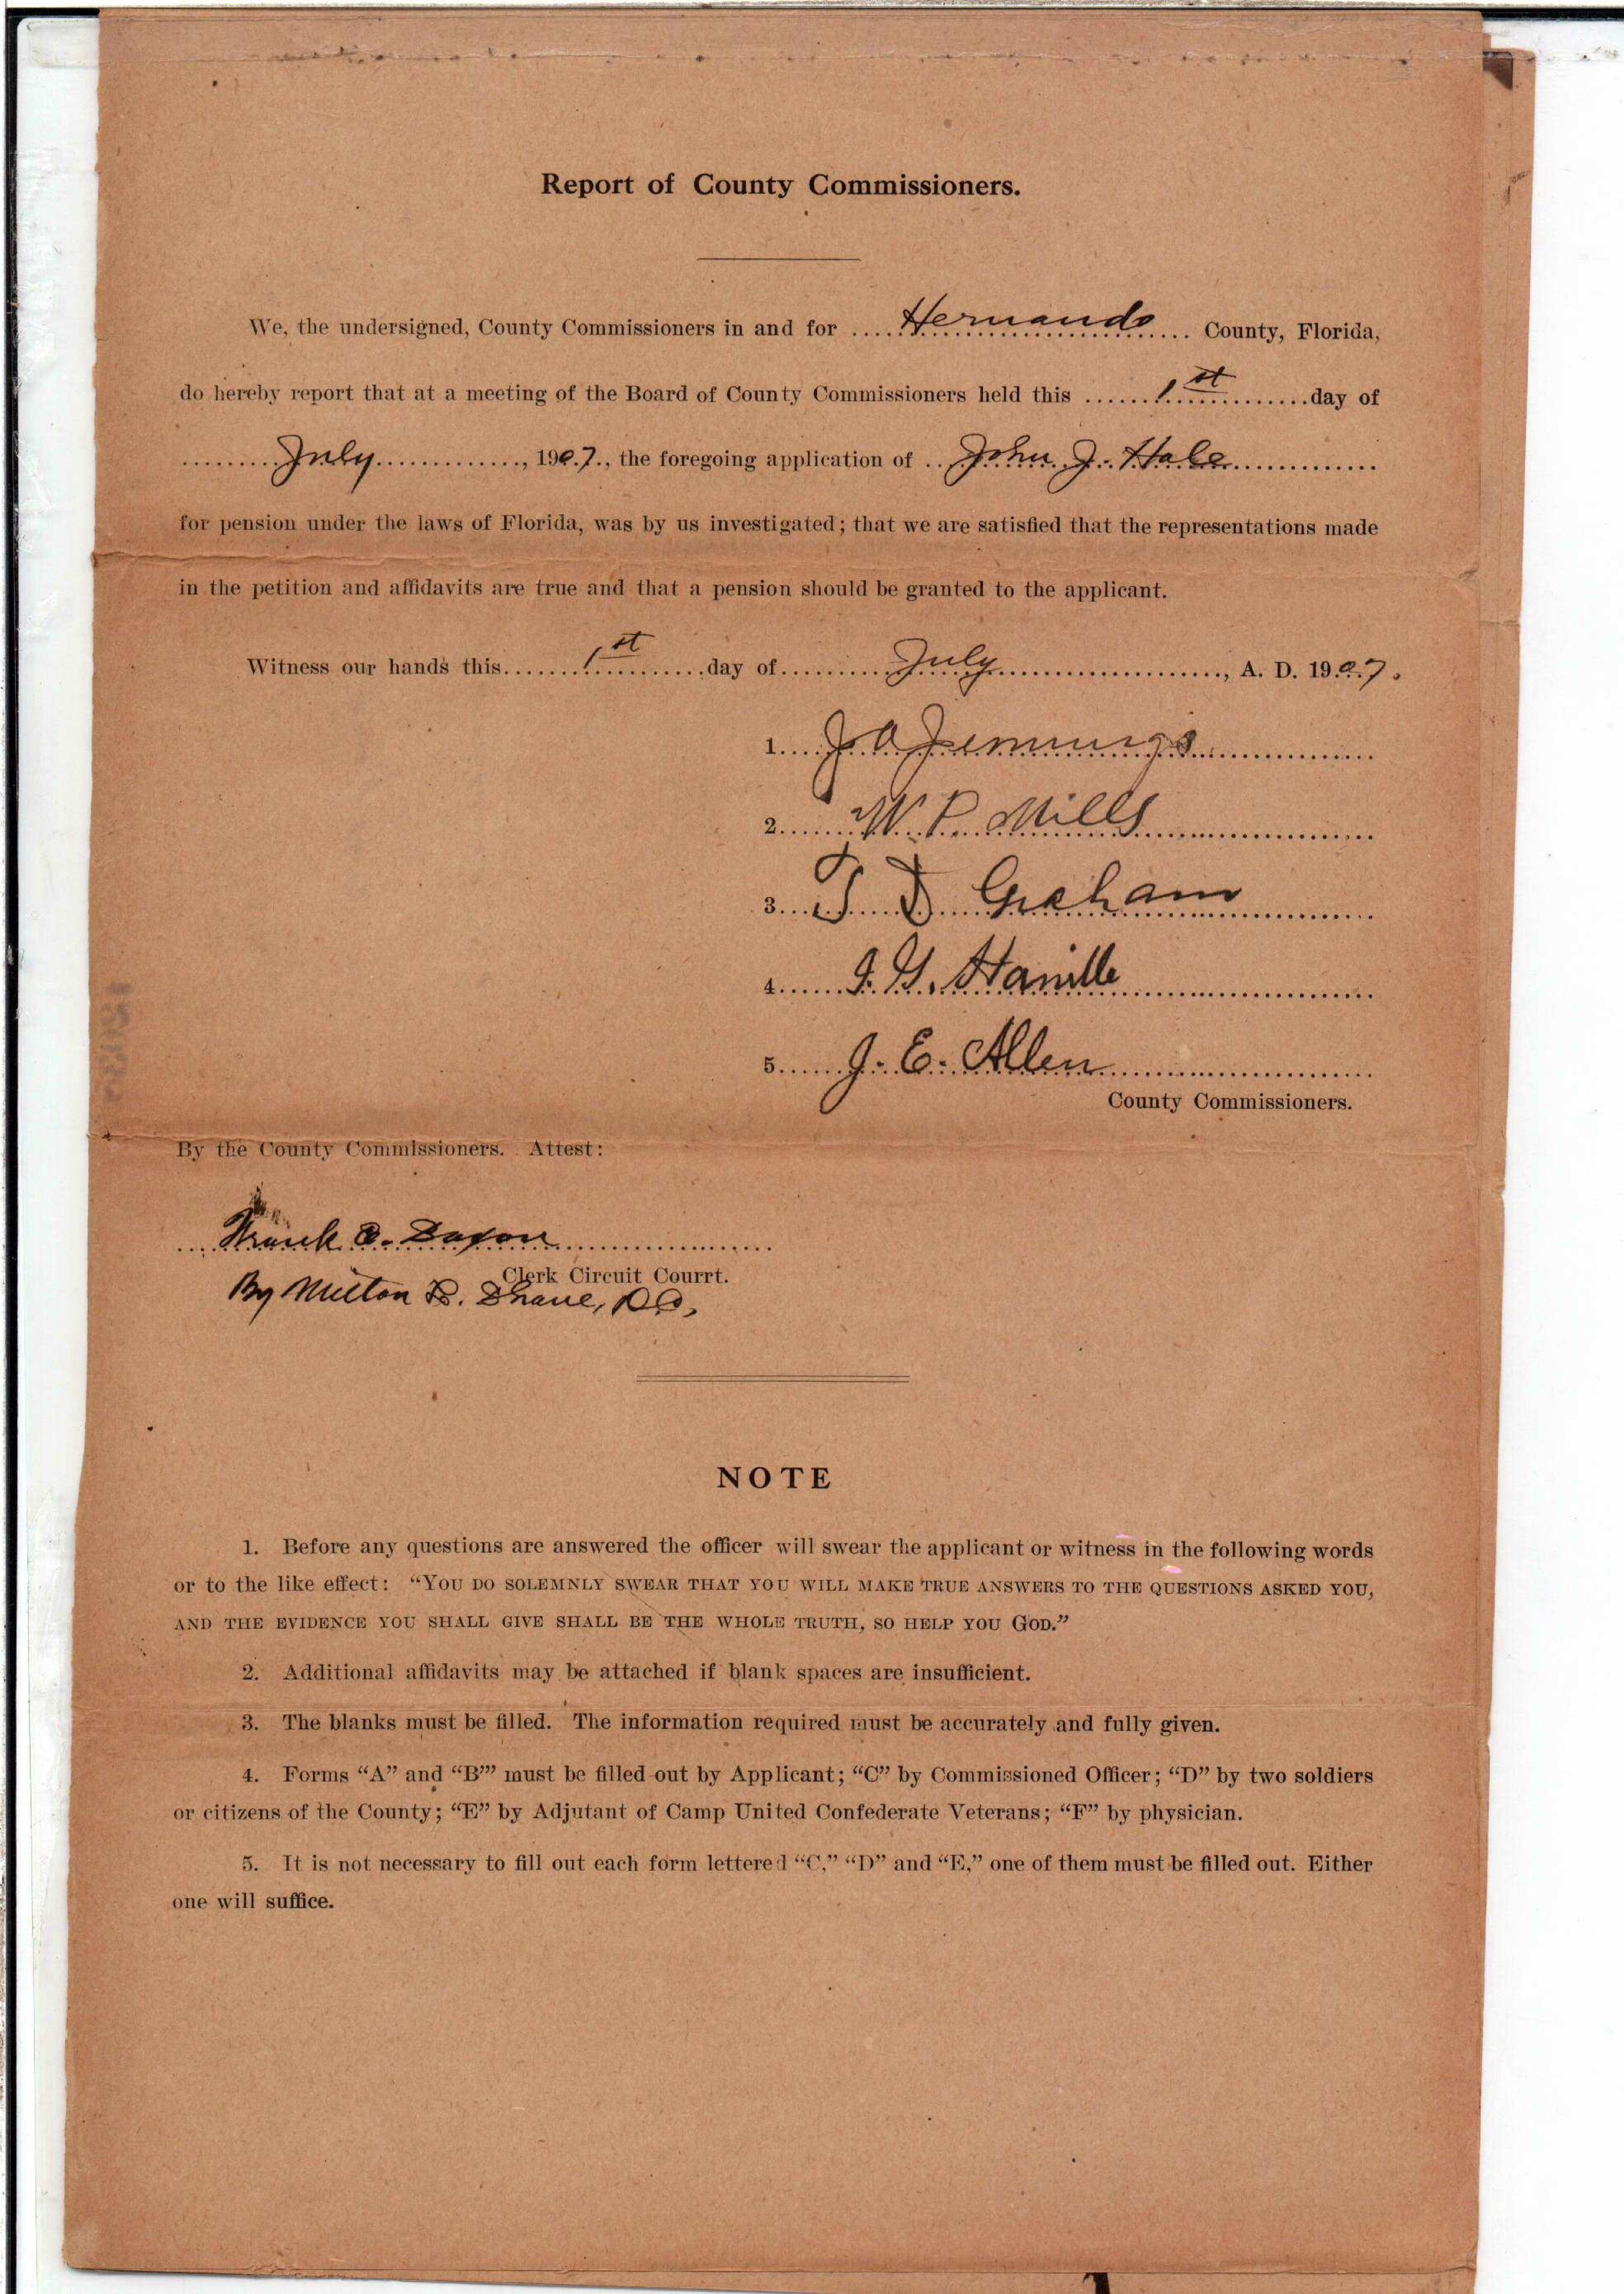 Report of County Commissioners.
We, the undersigned, County Commissioners in and for Hernando County, Florida,
do hereby report that at a meeting of the Board of County Commissioners held this 1st day of
July, 1907., the foregoing application of John J. Hale
for pension under the laws of Florida, was by us investigated; that we are satisfied that the representations made
in the petition and affidavits are true and that a pension should be granted to the applicant.
Witness our hands this 1st day of July, A. D. 1907.
1. J A Jennings
2. W. P. Mills
3. T D Graham
4.
5. J. E. Allen
County Commissioners.
By the County Commissioners. Attest:
Frank
Clerk Circuit Courrt.
By Milton
NOTE
1. Before any questions are answered the officer will swear the applicant or witness in the following words
or to the like effect: “YOU DO SOLEMNLY SWEAR THAT YOU WILL MAKE TRUE ANSWERS TO THE QUESTIONS ASKED YOU,
AND THE EVIDENCE YOU SHALL GIVE SHALL BE THE WHOLE TRUTH, SO HELP YOU GOD.”
2. Additional affidavits may be attached if blank spaces are insufficient.
3. The blanks must be filled. The information required must be accurately and fully given.
4. Forms “A” and “B”’ must be filled out by Applicant; “C” by Commissioned Officer; “D” by two soldiers
or citizens of the County; “E” by Adjutant of Camp United Confederate Veterans; “F” by physician.
5. It is not necessary to fill out each form lettered “C,” “D” and “E,” one of them must be filled out. Either
one will suffice.